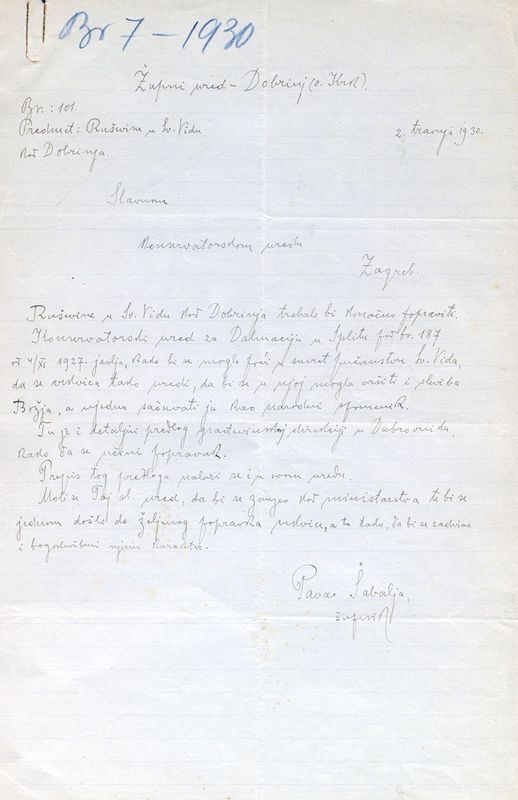 Br 7 - 1930
Župni ured - Dobrinj (o. Krk).
Br.: 101.
Predmet: Ruševine u Sv. Vidu
kod Dobrinja.
2. travnja 1930.
Slavnom
Konservatorskom uredu
Zagreb.
Ruševine u Sv. Vidu kod Dobrinja trebalo bi konačno popraviti.
Konservatorski ured za Dalmaciju u Splitu pod br. 187
od 4/XI 1927. javlja, kako bi se moglo poći u susret pučanstvu Sv. Vida,
da se crkvica tako uredi, da bi se u njoj mogla vršiti i služba
Božja, a ujedno sačuvati ju kao narodni spomenik.
Tu je i detaljni predlog građevinskoj direkciji u Dubrovniku,
kako da se učini popravak.
Prepis tog predloga nalazi se i u ovom uredu.
Moli se Taj sl. ured, da bi se zauzeo kod ministarstva te bi se
jednom došlo do željenog popravka crkvice, a to tako, da bi se zadržao
i bogoslužbeni njezin karakter.
Pavao Šabalja,
župnik